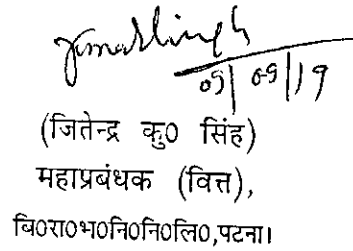 09/09/19
(जितेन्द्र कु0 सिंह)
महाप्रबंधक (वित्त),
बि0रा0भ0नि0नि0लि0,पटना।